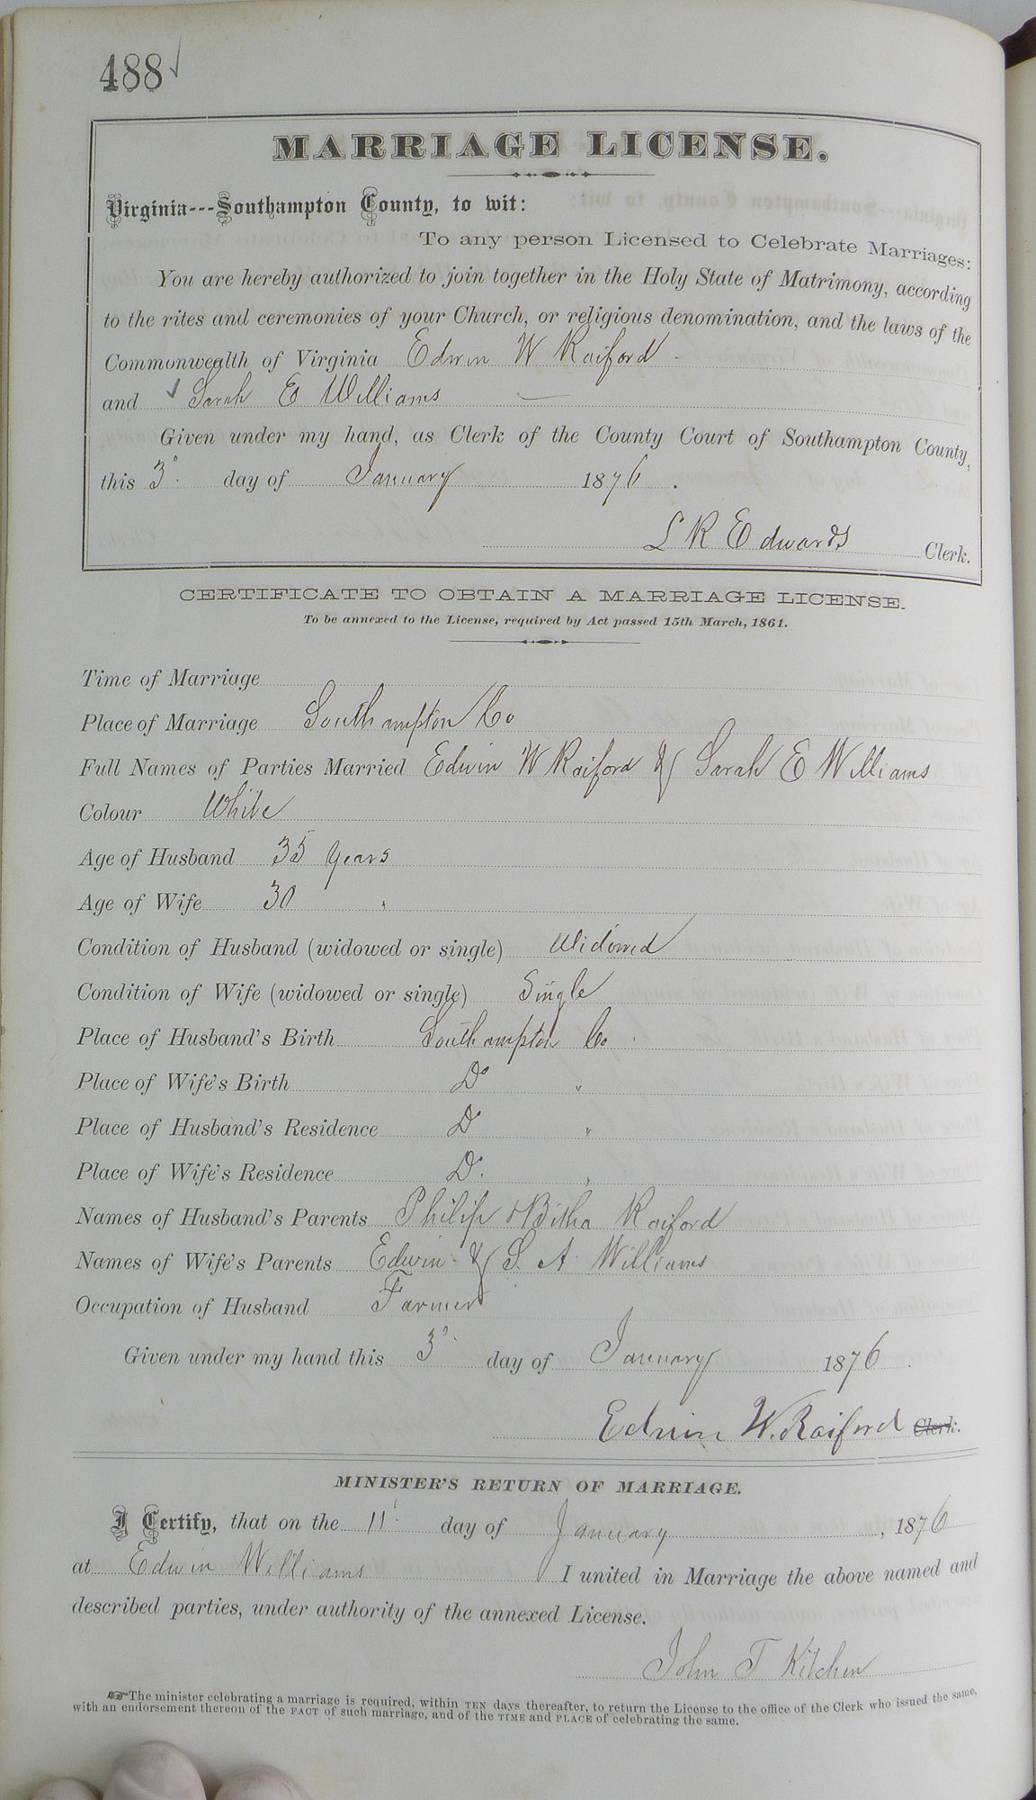 488 ✓
MARRIAGE LICENSE.
Virginia---Southampton County, to wit:
To any person Licensed to Celebrate Marriages:
You are hereby authorized to join together in the Holy State of Matrimony, according
to the rites and ceremonies of your Church, or religious denomination, and the laws of the
Commonwealth of Virginia Edwin W Raiford -
and ✓ Sarah E Williams —
Given under my hand, as Clerk of the County Court of Southampton County,
this 3° day of January 1876.
L R Edwards Clerk.
CERTIFICATE TO OBTAIN A MARRIAGE LICENSE.
To be annexed to the License, required by Act passed 15th March, 1861.
Time of Marriage
Place of Marriage Southampton Co
Full Names of Parties Married Edwin W Raiford & Sarah E Williams
Colour White
Age of Husband 35 Years
Age of Wife 30 "
Condition of Husband (widowed or single) Widowed
Condition of Wife (widowed or single) Single
Place of Husband's Birth Southampton Co.
Place of Wife's Birth Do "
Place of Husband's Residence Do "
Place of Wife's Residence Do "
Names of Husband's Parents Philip & Bitha Raiford
Names of Wife's Parents Edwin & S. A. Williams
Occupation of Husband Farmer
Given under my hand this 3° day of January 1876.
Edwin W. Raiford Clerk.
MINISTER'S RETURN OF MARRIAGE.
I Certify, that on the 11° day of January, 1876
at Edwin Williams I united in Marriage the above named and
described parties, under authority of the annexed License.
John T Kitchen
☞The minister celebrating a marriage is required, within TEN days thereafter, to return the License to the office of the Clerk who issued the same,
with an endorsement thereon of the FACT of such marriage, and of the TIME and PLACE of celebrating the same.